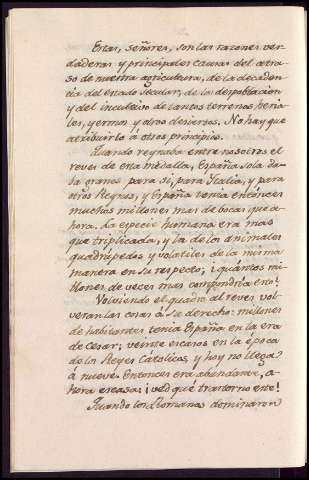 Estas, señores, son las razones ver-
daderas y principales causas del atra-
so de nuestra agricultura, de la decaden-
cia del estado secular, de la despoblacion
y del incultismo de tantos terrenos heria-
les, yermos y otros desiertos. No hay que
atribuirlo á otros principios.
Quando reynaba entre nosotros el
reves de esta medalla, España sola da-
ba granos para sí, para Italia, y para
otros Reynos, y España tenia entonces
muchos millones mas de bocas que a-
hora. La especie humana era mas
que triplicada, y la de los animales
quadrupedos y volatiles de la misma
manera en su respecto; ¡quántos mi-
llones de veces mas compondria esto!
Volviendo el guion al reves vol-
veran las cosas á su derecho: millones
de habitantes tenia España en la era
de Cesar; veinte escasos en la época
de los Reyes Católicos, y hoy no llega
á nueve. Entonces era abundante, a-
hora escasa: ¡ved qué trastorno este!
Quando los Romanos dominaron